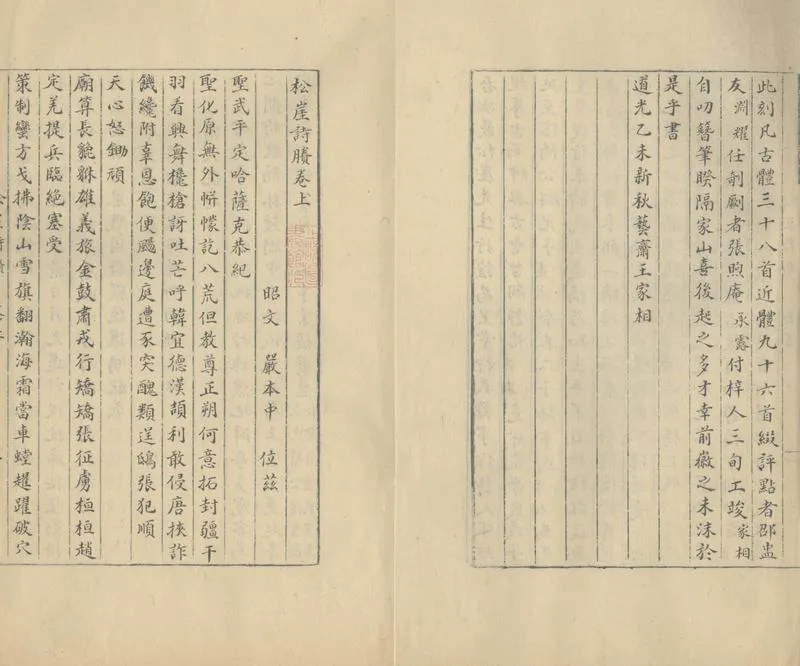 此刻凡古體三十八首近體九十六首綴評點者邵盅
友淵耀仕剞劂者張煦庵承露付梓人三旬工竣家相
自叨簪筆暌隔家山喜後起之多才幸前徽之未沫於
是乎書
道光乙未新秋藝齋王家相
松崖詩賸卷上
昭文 嚴本中 位茲
聖武平定哈薩克恭紀
聖化原無外帡幪訖八荒但教尊正朔何意拓封疆干
羽看興舞欃槍訝吐芒呼韓宜德漢頡利敢侵唐挾詐
饑纔附辜恩飽便颺邊庭遭豕突醜類逞鴟張犯順
天心怒鋤頑
廟算長貔貅雄義旅金鼓肅戎行矯矯張征虜桓桓趙
定羌提兵臨絕塞受
策制蠻方戈拂陰山雪旗翻瀚海霜當車螳趯躍破穴